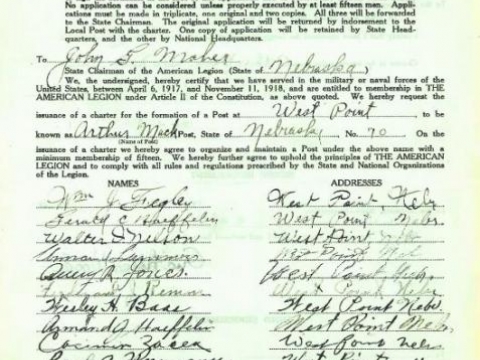 No application can be considered unless properly executed by at least fifteen men. Appli-
cations must be made in triplicate, one original and two copies. All three will be forwarded
to the State Chairman. The original application will be returned by indorsement to the
Local Post with the charter. One copy of application will be retained by State Head-
quarters, and the other by National Headquarters.
To John G. Maher
State Chairman of the American Legion (State of Nebraska)
We, the undersigned, hereby certify that we served in the military or naval forces of the
United States, between April 6, 1917, and November 11, 1918, and are entitled to membership in
THE AMERICAN LEGION under Article II of the Constitution, as above quoted. We hereby request
issuance of a charter for the formation of a Post at West Point to be
known as Arthur Mack Post, State of Nebraska, No. 70 On the
(Name of Post)
issuance of a charter we hereby agree to organize and maintain a Post under the above name with a
minimum membership of fifteen. We further hereby agree to uphold the principles of THE AMERICAN
LEGION and to comply with all rules and regulations prescribed by the State and National Organizations
of the Legion.
NAMES ADDRESSES
Wm J West Point, Nebr
Gerald C Haeffelin West Point Nebr.
Walter D Nelson West Point Neb
West Point Neb
R. Jones. West Point Nebr.
West Point Nebr
Wesley H. Base West Point Nebr.
Armand A Haeffelin West Point Nebr,
Casimir Zacek West Point Nebr